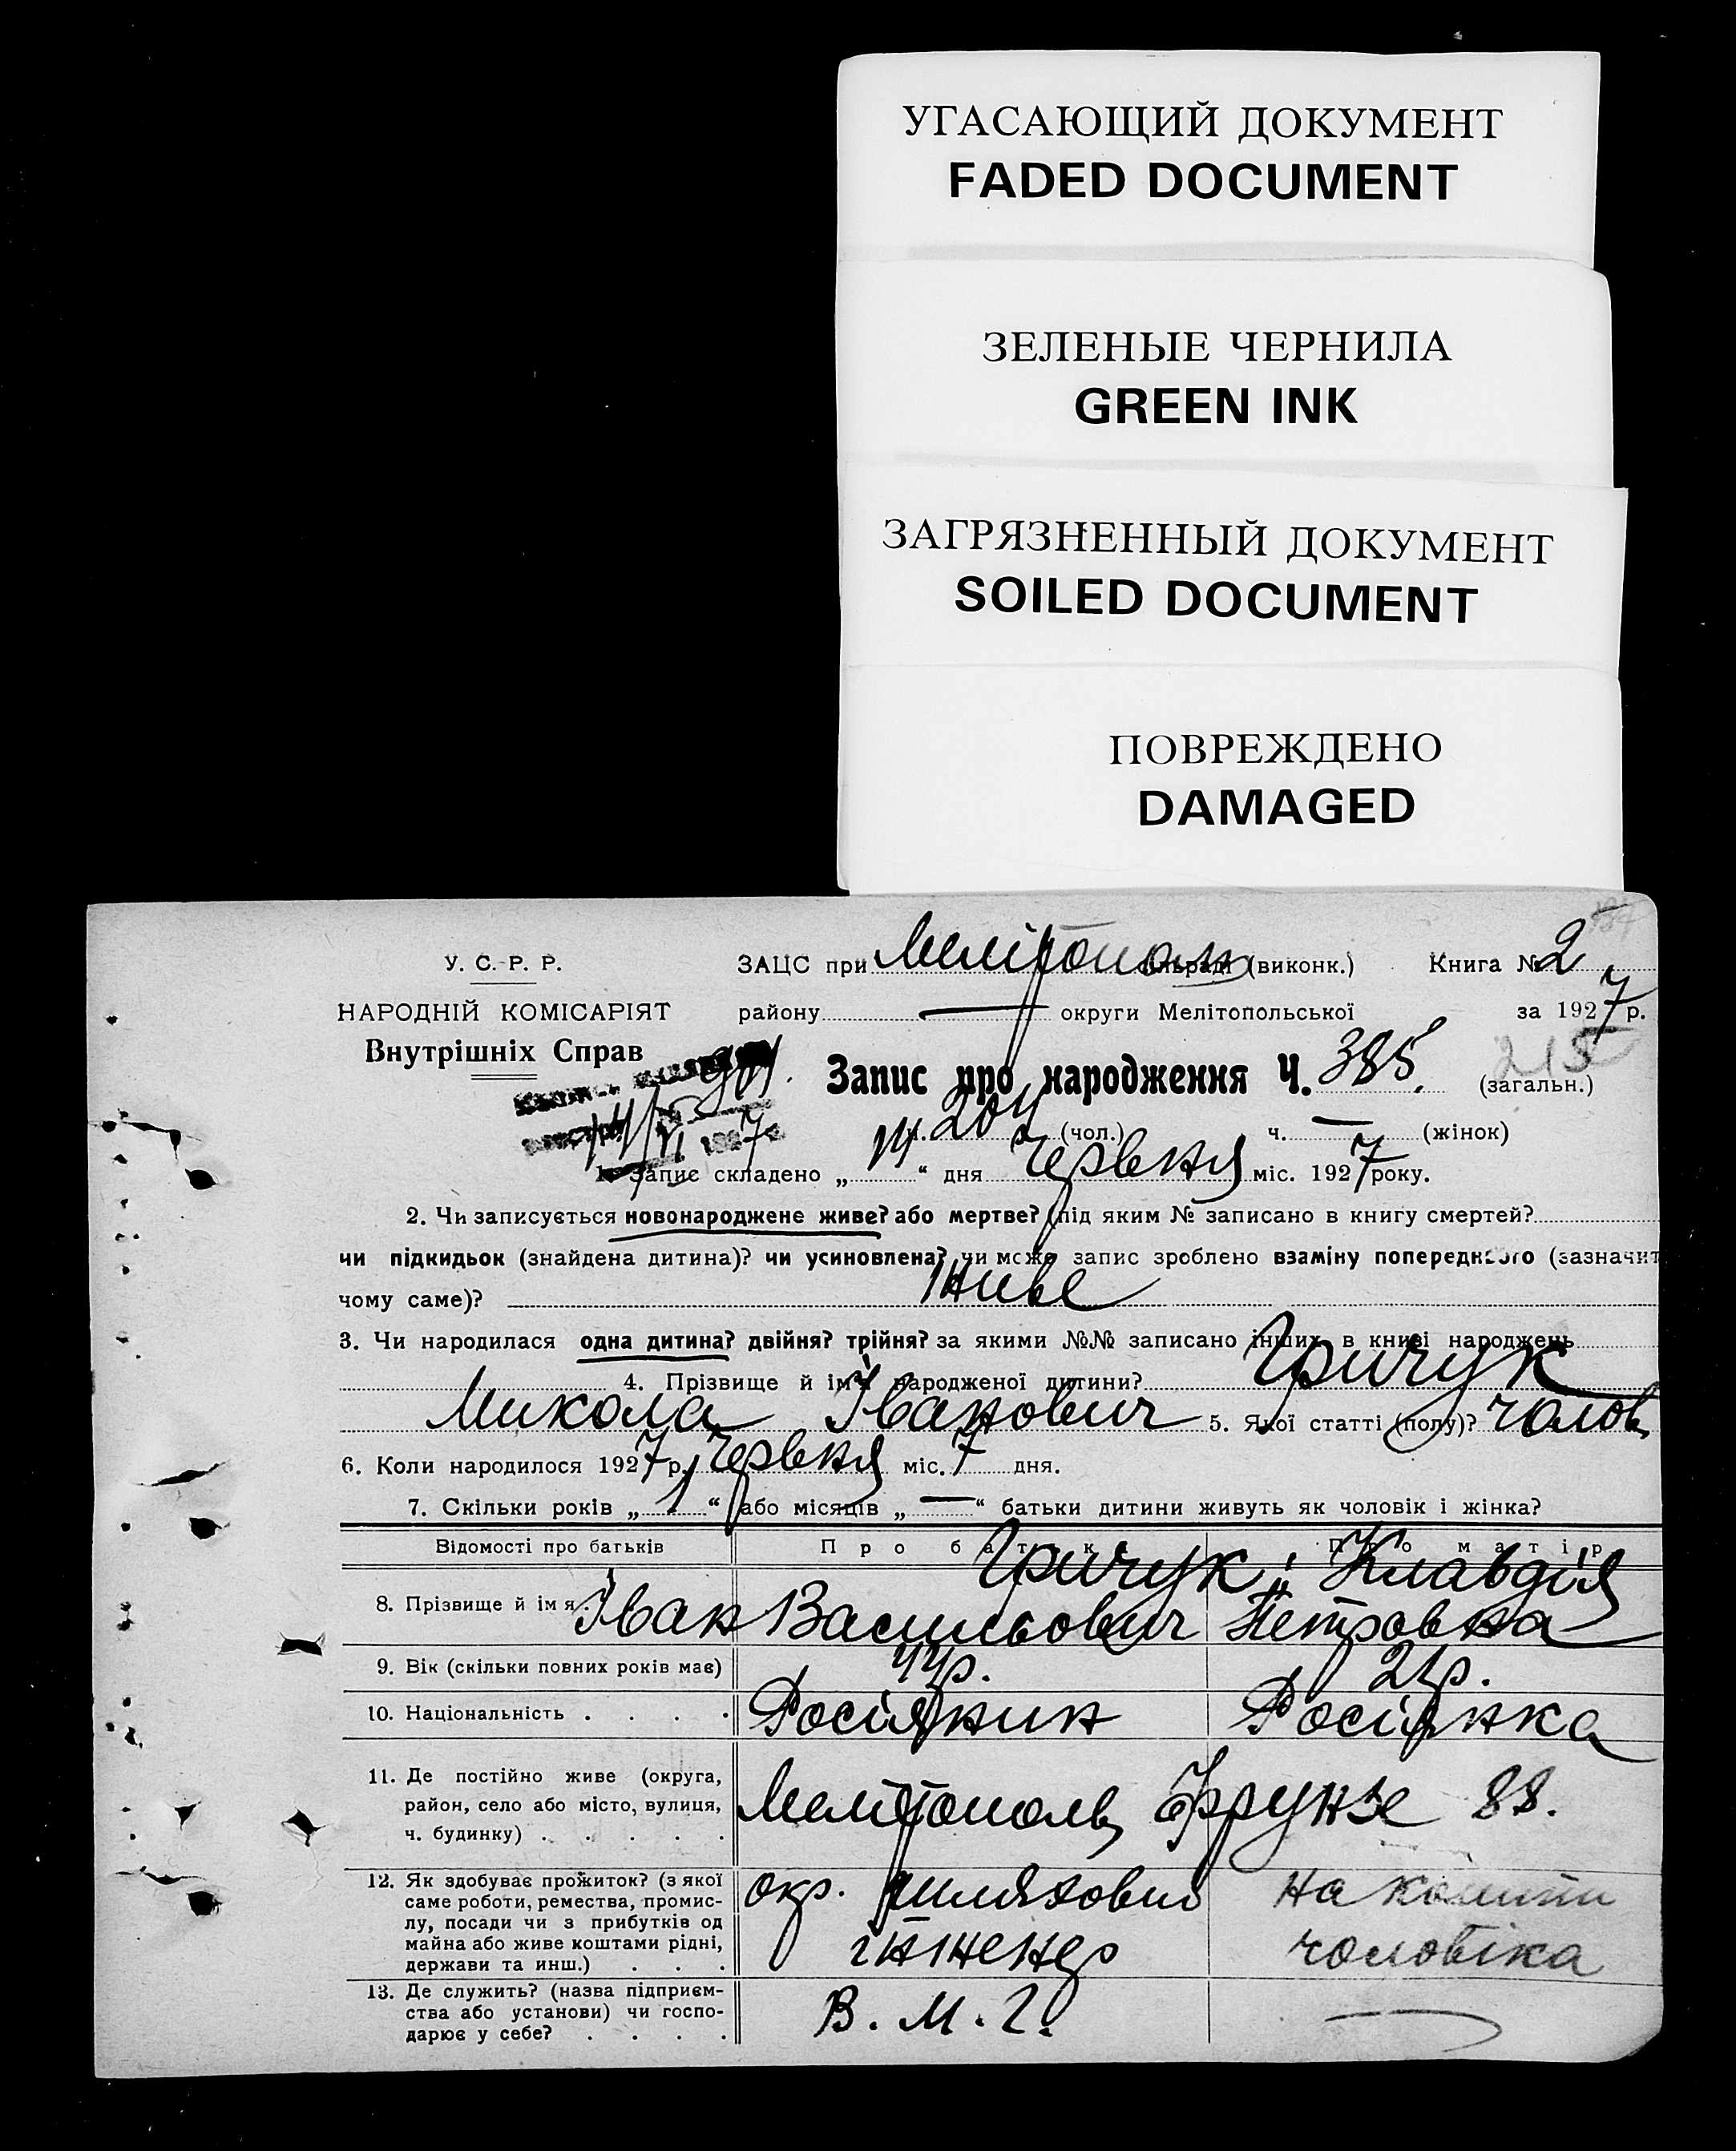 УГАСАЮЩИЙ ДОКУМЕНТ
FADED DOCUMENT
ЗЕЛЕНЫЕ ЧЕРНИЛА
GREEN INK
ЗАГРЯЗНЕННЫЙ ДОКУМЕНТ
SOILED DOCUMENT
ПОВРЕЖДЕНО
DAMAGED
У. С. Р. Р.
НАРОДНІЙ КОМІСАРІЯТ
Внутрішніх Справ
ЗАЦС при сільраді (виконк.) Книга № 2
району — округи Мелітопольської за 1927 р.
Запис про народження Ч. 385. (загальн.)
204 (чол.) ч. — (жінок)
1. Запис складено „14“ дня Червня міс. 1927 року.
2. Чи записується новонароджене живе? або мертве? (під яким № записано в книгу смертей?
чи підкидьок (знайдена дитина)? чи усиновлена? чи може запис зроблено взаміну попереднього (зазначит
чому саме)? Живе
3. Чи народилася одна дитина? двійня? трійня? за якими №№ записано інших в книзі народжень
4. Прізвище й ім'я народженої дитини? Гричук
Микола Іванович 5. Якої статті (полу)? чолов
6. Коли народилося 1927 р. Червня міс. 7 дня.
7. Скільки років „1“ або місяців „—“ батьки дитини живуть як чоловік і жінка?
Відомості про батьків Про батька Про матір
8. Прізвище й ім'я. Гричук Іван Васильович Клавдія Петровна
9. Вік (скільки повних років має) 44р. 21р.
10. Національність . . . . Росіянин Росіянка
11. Де постійно живе (округа,
район, село або місто, вулиця,
ч. будинку) . . . . .
Мелітополь, Фрунзе 88.
12. Як здобуває прожиток? (з якої
саме роботи, ремества, промис-
лу, посади чи з прибутків од
майна або живе коштами рідні,
держави та инш.) . . .
окр. шляховий
інженер
на кошти
чоловіка
13. Де служить? (назва підприєм-
ства або установи) чи госпо-
дарює у себе? . . . .